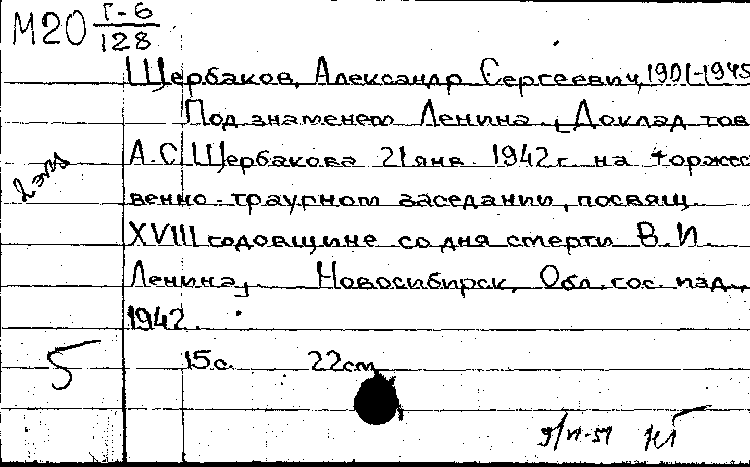 М20 Г-6
128
Щербаков, Александр Сергеевич, 1901-1945
Под знаменем Ленина. [Доклад тов
А.С Щербакова 21 янв. 1942 г. на торжес
2 экз
венно-траурном заседании, посвящ.
XVIII годовщине со дня смерти В.И.
Ленина]. Новосибирск, Обл. гос. изд.,
1942.
5 15 с. 22 см
9/VI-51